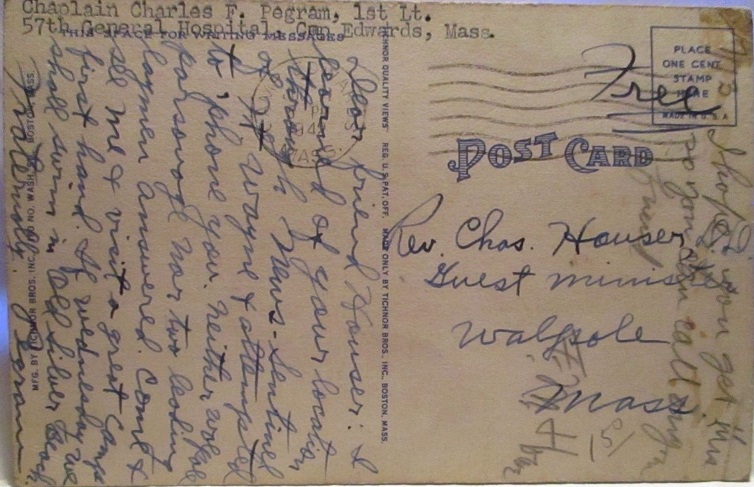 Chaplain Charles F. Pegram, 1st Lt.
57th General Hospital, Cmp Edwards, Mass.
THIS SPACE FOR WRITING MESSAGES
Dear friend Houser: I
learned of your location
through News-Sentinel
of Ft Wayne & attempted
to 'phone you. Neither
parsonage nor two leading
laymen answered. Come &
see me & visit a great Camp
first hand. If Wednesday we
shall swim in Old Silver Beach
Fraternally, Pegram
MFG. BY TICHNOR BROS. INC., BOSTON, MASS.
"TICHNOR QUALITY VIEWS" REG. U. S. PAT. OFF. MADE ONLY BY TICHNOR BROS., INC., BOSTON, MASS.
MASS.
Free
PLACE
ONE CENT
STAMP
HERE
MADE IN U. S. A.
POST CARD
Rev. Chas. Houser
Guest minister
Walpole
Mass.
I hope you get this
so you can call